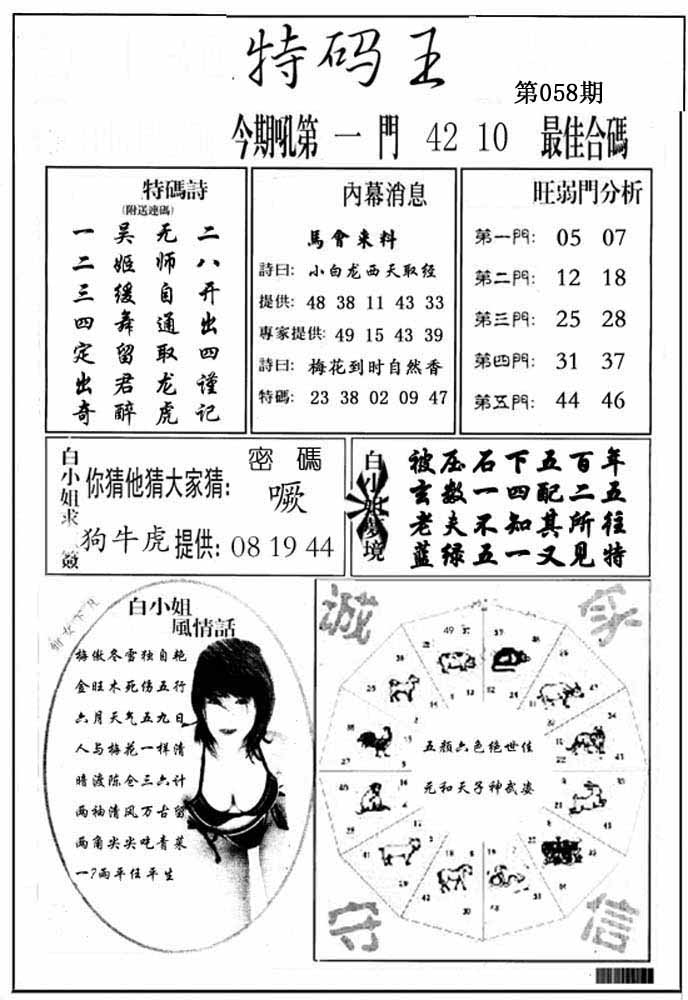 特码王
第058期
今期吼第一門 42 10 最佳合碼
特碼詩
(附送連碼)
一吴无二
二姬师八
三缓自开
四舞通出
定留取四
出君龙谨
奇醉虎记
內幕消息
馬會来料
詩曰: 小白龙西天取经
提供: 48 38 11 43 33
專家提供: 49 15 43 39
詩曰: 梅花到时自然香
特碼: 23 38 02 09 47
旺弱門分析
第一門: 05 07
第二門: 12 18
第三門: 25 28
第四門: 31 37
第五門: 44 46
白小姐求簽
密碼
你猜他猜大家猜: 噘
狗牛虎 提供: 08 19 44
白小姐夢境
被压石下五百年
玄数一四配二五
老夫不知其所往
蓝绿五一又见特
白小姐
風情話
梅傲冬雪独自艳
金旺木死伤五行
六月天气五九日
人与梅花一样清
暗渡陈仓三六计
两袖清风万古留
两角尖尖吃青菜
一?兩平任平生
誠
家
五顏六色绝世佳
元和天子神武姿
守
信